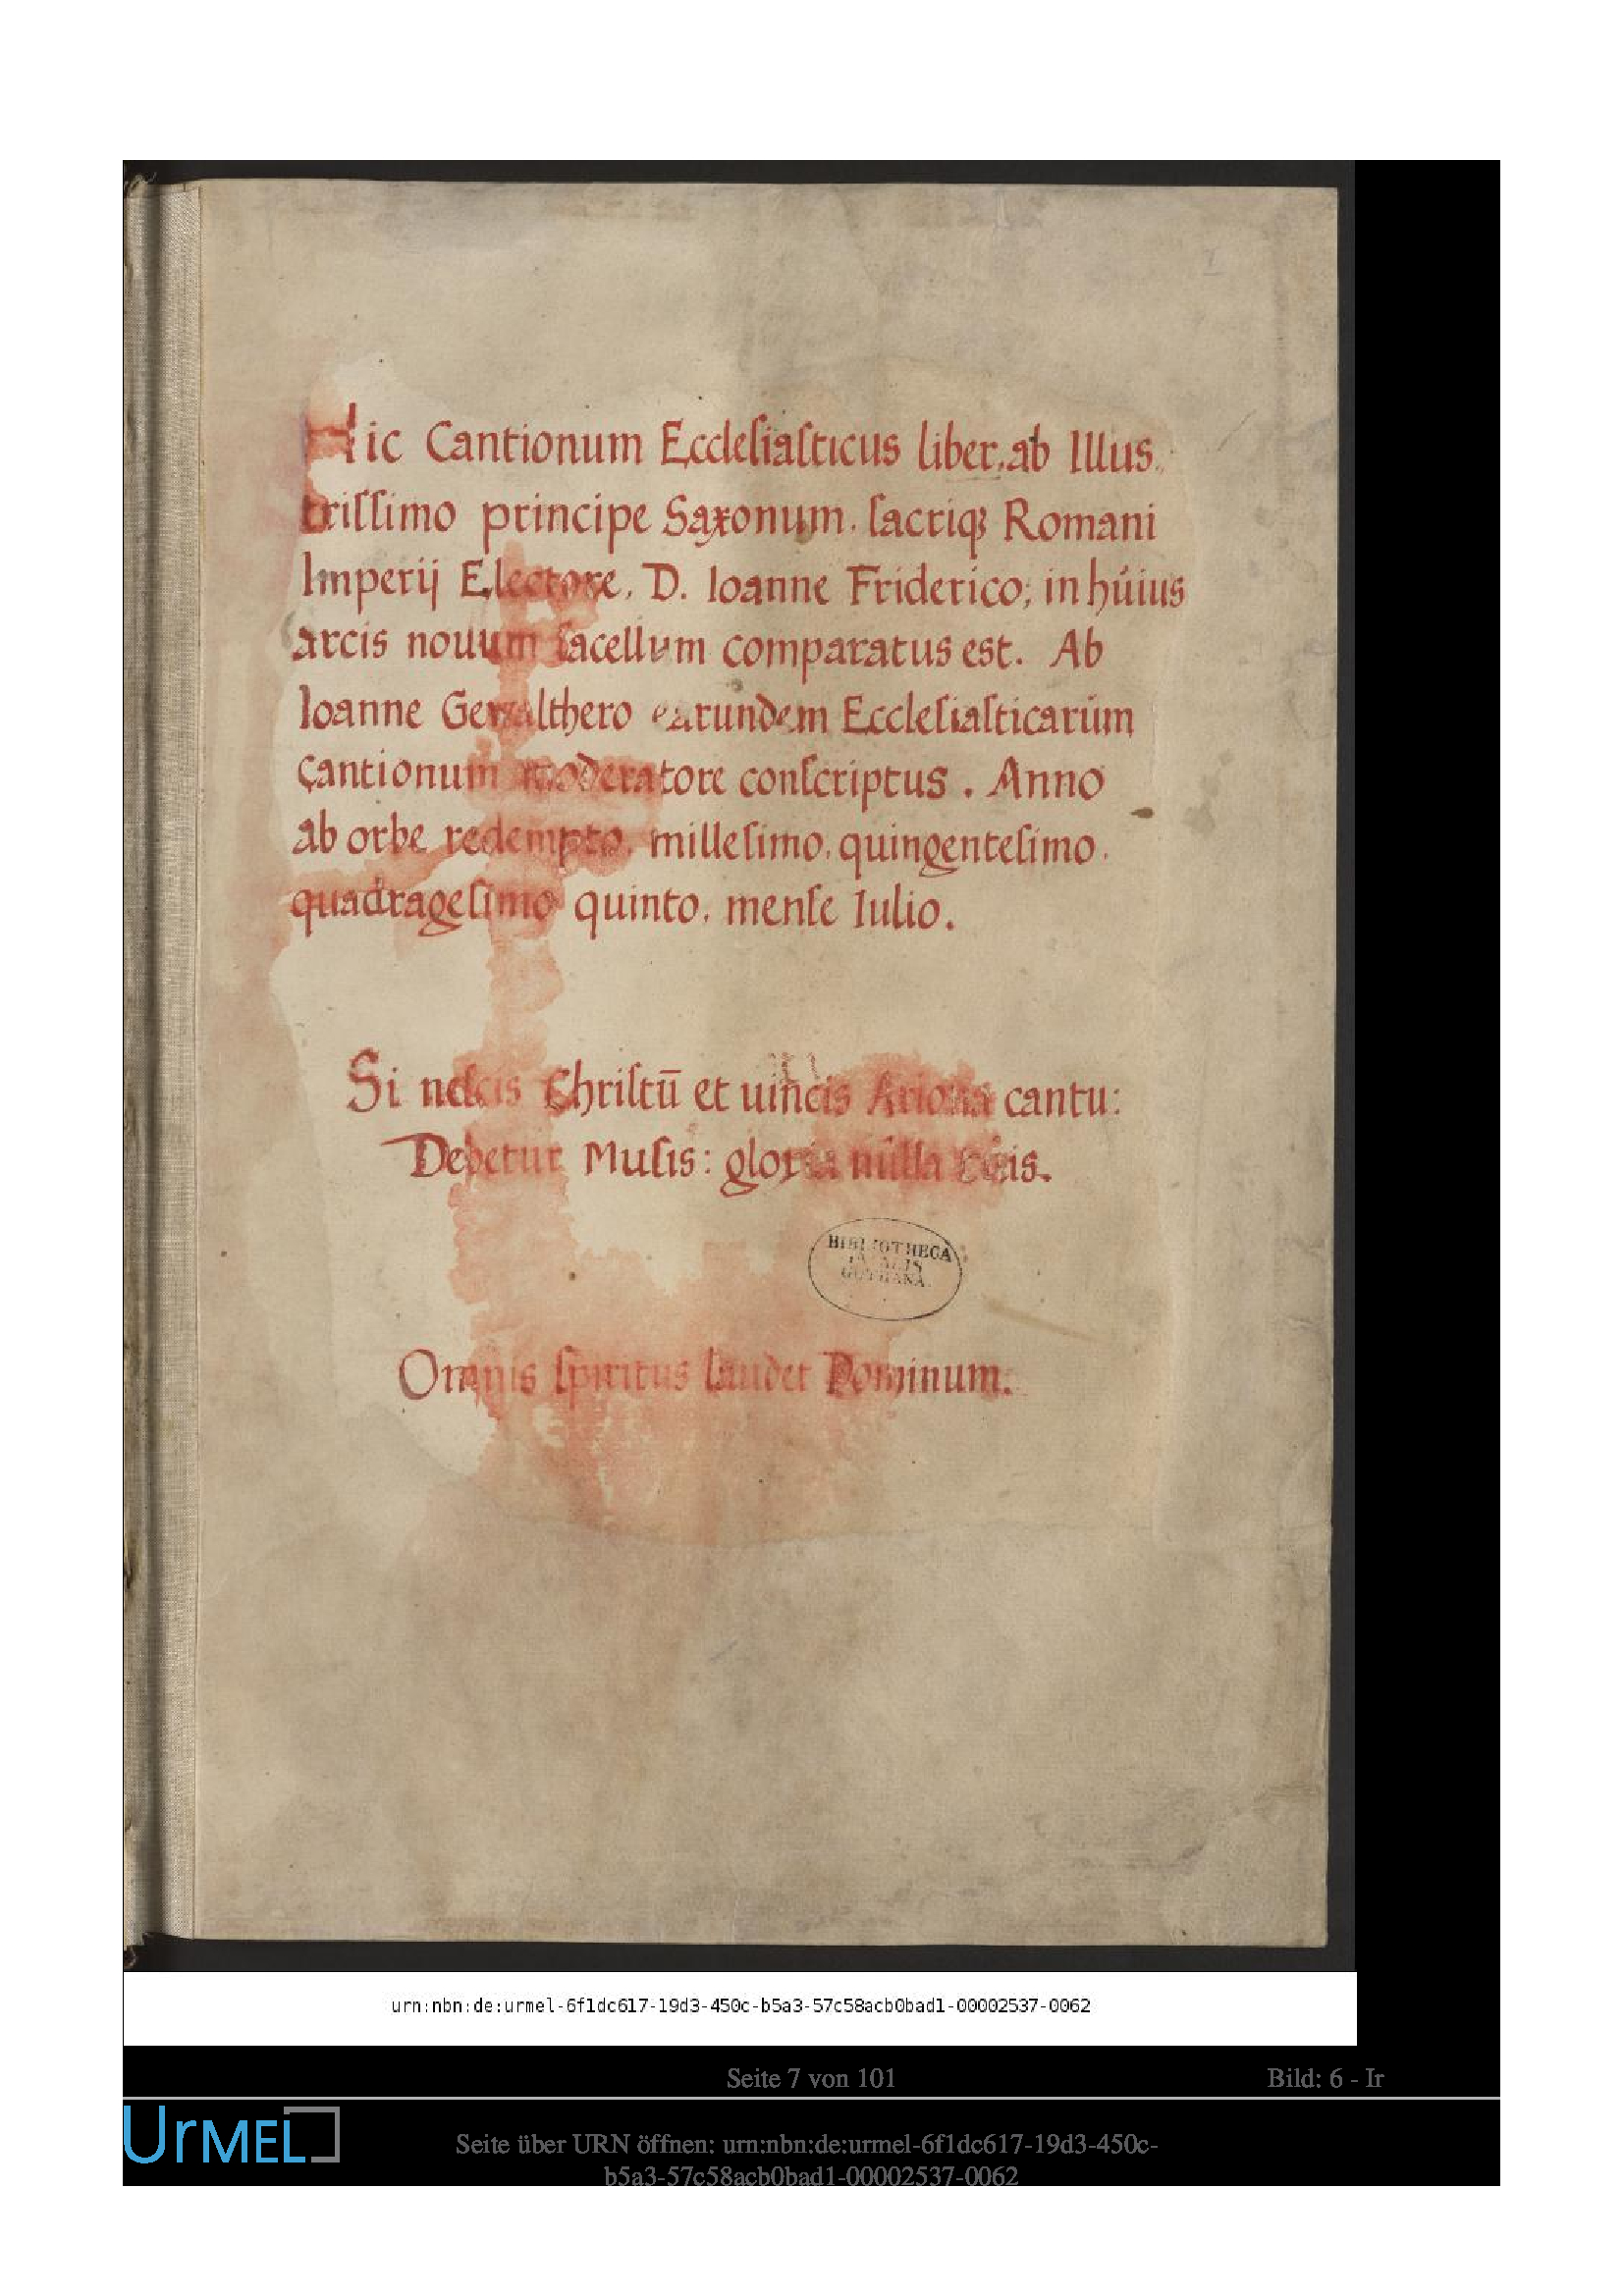 1
Hic Cantionum Eccleſiaſticus liber, ab Illus,
triſſimo principe Saxonum, ſacriqꝫ Romani
Imperij Electore, D. Ioanne Friderico; in húius
arcis nouum ſacellum comparatus est. Ab
Ioanne Gewalthero earundem Eccleſiaſticarúm
Cantionum moderatore conſcriptus. Anno
ab orbe redempto, milleſimo, quingenteſimo,
quadrageſimo quinto, menſe Iulio.
Si neſcis Chriſtū et uincis Ariona cantu:
Debetur Muſis: gloria nulla
Omnis ſpiritus laudet Dominum.
BIBLIOTHECA
DUCALIS
GOTHANA.
urn:nbn:de:urmel-6f1dc617-19d3-450c-b5a3-57c58acb0bad1-00002537-0062
Seite 7 von 101 Bild: 6 - Ir
UrMEL
Seite über URN öffnen: urn:nbn:de:urmel-6f1dc617-19d3-450c-
b5a3-57c58acb0bad1-00002537-0062